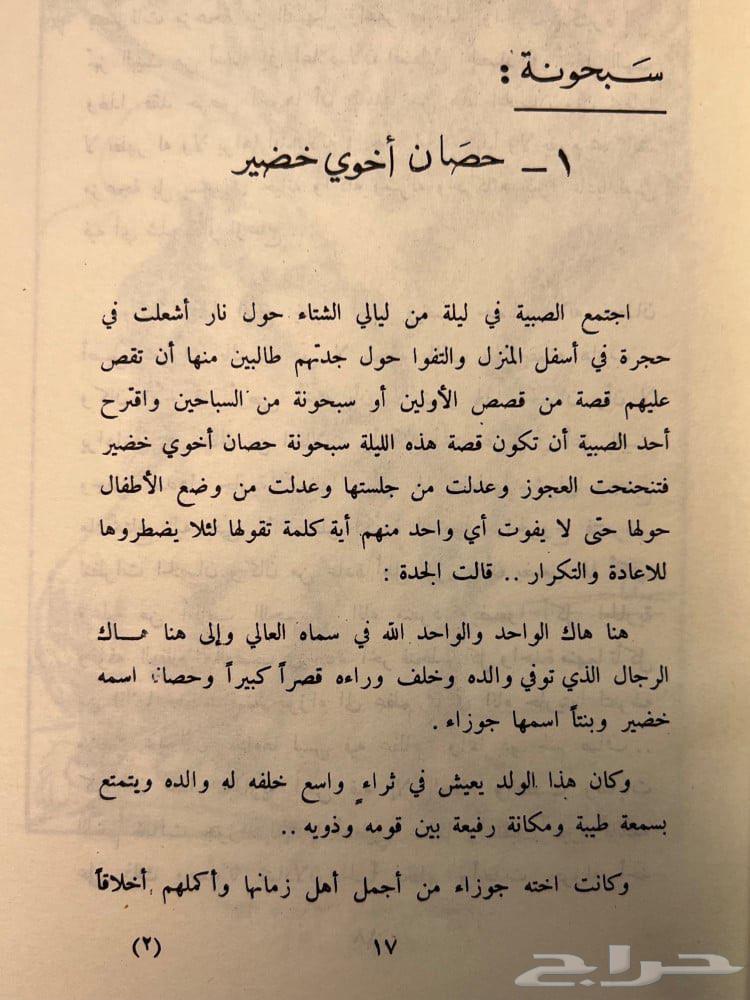 سَبحونة :
١ - حصَان أخوي خضير
اجتمع الصبية في ليلة من ليالي الشتاء حول نار أشعلت في
حجرة في أسفل المنزل والتفوا حول جدتهم طالبين منها أن تقص
عليهم قصة من قصص الأولين أو سبحونة من السباحين واقترح
أحد الصبية أن تكون قصة هذه الليلة سبحونة حصان أخوي خضير
فتنحنحت العجوز وعدلت من جلستها وعدلت من وضع الأطفال
حولها حتى لا يفوت أي واحد منهم أية كلمة تقولها لئلا يضطروها
للاعادة والتكرار .. قالت الجدة :
هنا هاك الواحد والواحد الله في سماه العالي وإلى هنا هاك
الرجال الذي توفي والده وخلف وراءه قصراً كبيراً وحصاناً اسمه
خضير وبنتاً اسمها جوزاء .
وكان هذا الولد يعيش في ثراءٍ واسع خلفه له والده ويتمتع
بسمعة طيبة ومكانة رفيعة بين قومه وذويه ..
وكانت اخته جوزاء من أجمل أهل زمانها وأكملهم أخلاقاً
١٧
(٢)
حراج